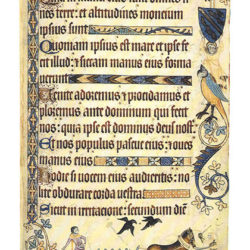 nes terre: et altitudines moncium
ipsius sunt
Quoniam ipsius est mare et ipse fe
cit illud: & siccam manus eius forma
uerunt
Uenite adoremus & procidamus et
ploremus ante dominum qui fecit
nos: quia ipse est dominus
Et nos populus pascue eius: & oues
manus eius
Hodie si uocem eius audieritis: no
lite obdurare corda vestra
Sicut in irritacione: secundum diē